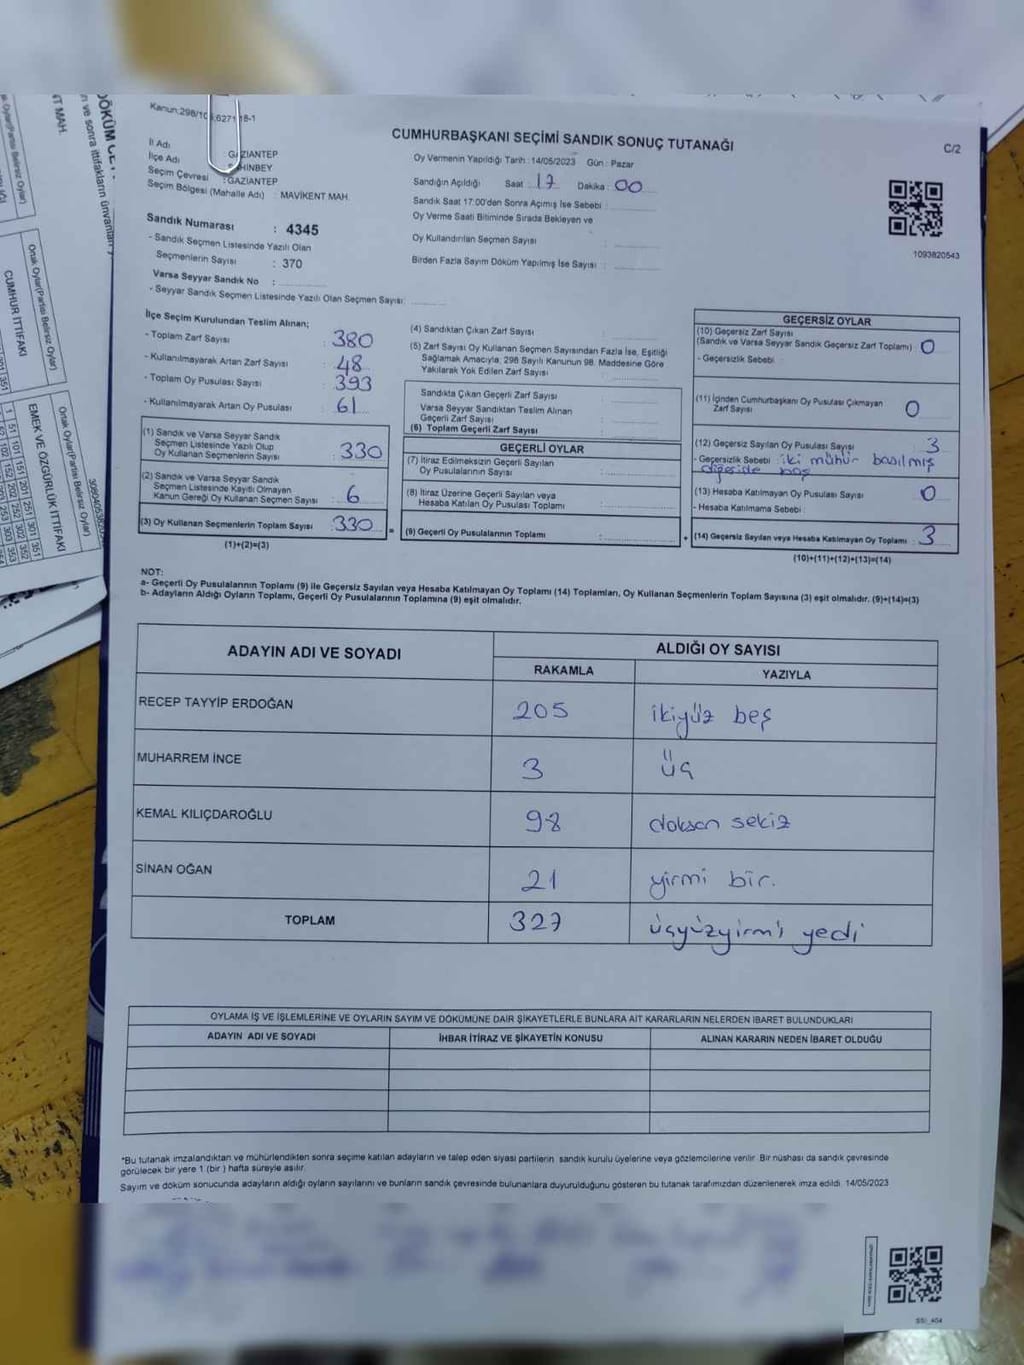 Kanun:298/10
6271
18-1
CUMHURBAŞKANI SEÇİMİ SANDIK SONUÇ TUTANAĞI
C/2
İl Adı
GAZİANTEP
İlçe Adı
Seçim Çevresi : GAZİANTEP
Seçim Bölgesi (Mahalle Adı) : MAVİKENT MAH.
Oy Vermenin Yapıldığı Tarih : 14/05/2023 Gün : Pazar
Sandığın Açıldığı Saat 17 Dakika : 00
Sandık Saat 17:00'den Sonra Açımış İse Sebebi :
Oy Verme Saati Bitiminde Sırada Bekleyen ve
Oy Kullandırılan Seçmen Sayısı :
Birden Fazla Sayım Döküm Yapılmış İse Sayısı :
1093820543
Sandık Numarası : 4345
- Sandık Seçmen Listesinde Yazılı Olan
Seçmenlerin Sayısı : 370
Varsa Seyyar Sandık No :
- Seyyar Sandık Seçmen Listesinde Yazılı Olan Seçmen Sayısı:
İlçe Seçim Kurulundan Teslim Alınan;
- Toplam Zarf Sayısı : 380
- Kullanılmayarak Artan Zarf Sayısı : 48
- Toplam Oy Pusulası Sayısı : 393
- Kullanılmayarak Artan Oy Pusulası : 61
(1) Sandık ve Varsa Seyyar Sandık
Seçmen Listesinde Yazılı Olup
Oy Kullanan Seçmenlerin Sayısı : 330
(2) Sandık ve Varsa Seyyar Sandık
Seçmen Listesinde Kayıtlı Olmayan
Kanun Gereği Oy Kullanan Seçmen Sayısı : 6
(3) Oy Kullanan Seçmenlerin Toplam Sayısı : 330 =
(1)+(2)=(3)
(4) Sandıktan Çıkan Zarf Sayısı :
(5) Zarf Sayısı Oy Kullanan Seçmen Sayısından Fazla İse, Eşitliği
Sağlamak Amacıyla; 298 Sayılı Kanunun 98. Maddesine Göre
Yakılarak Yok Edilen Zarf Sayısı :
Sandıkta Çıkan Geçerli Zarf Sayısı :
Varsa Seyyar Sandıktan Teslim Alınan
Geçerli Zarf Sayısı :
(6) Toplam Geçerli Zarf Sayısı :
GEÇERLİ OYLAR
(7) İtiraz Edilmeksizin Geçerli Sayılan
Oy Pusulalarının Sayısı :
(8) İtiraz Üzerine Geçerli Sayılan veya
Hesaba Katılan Oy Pusulası Toplamı :
(9) Geçerli Oy Pusulalarının Toplamı : +
GEÇERSİZ OYLAR
(10) Geçersiz Zarf Sayısı
(Sandık ve Varsa Seyyar Sandık Geçersiz Zarf Toplamı) : 0
- Geçersizlik Sebebi :
(11) İçinden Cumhurbaşkanı Oy Pusulası Çıkmayan
Zarf Sayısı : 0
(12) Geçersiz Sayılan Oy Pusulası Sayısı : 3
- Geçersizlik Sebebi : iki mühür basılmış
diğeride boş
(13) Hesaba Katılmayan Oy Pusulası Sayısı : 0
- Hesaba Katılmama Sebebi :
(14) Geçersiz Sayılan veya Hesaba Katılmayan Oy Toplamı : 3
(10)+(11)+(12)+(13)=(14)
NOT:
a- Geçerli Oy Pusulalarının Toplamı (9) ile Geçersiz Sayılan veya Hesaba Katılmayan Oy Toplamı (14) Toplamları, Oy Kullanan Seçmenlerin Toplam Sayısına (3) eşit olmalıdır. (9)+(14)=(3)
b- Adayların Aldığı Oyların Toplamı, Geçerli Oy Pusulalarının Toplamına (9) eşit olmalıdır.
ADAYIN ADI VE SOYADI
ALDIĞI OY SAYISI
RAKAMLA YAZIYLA
RECEP TAYYİP ERDOĞAN 205 ikiyüz beş
MUHARREM İNCE 3 üç
KEMAL KILIÇDAROĞLU 98 doksan sekiz
SİNAN OĞAN 21 yirmi bir.
TOPLAM 327 üçyüzyirmi yedi
OYLAMA İŞ VE İŞLEMLERİNE VE OYLARIN SAYIM VE DÖKÜMÜNE DAİR ŞİKAYETLERLE BUNLARA AİT KARARLARIN NELERDEN İBARET BULUNDUKLARI
ADAYIN ADI VE SOYADI İHBAR İTİRAZ VE ŞİKAYETİN KONUSU ALINAN KARARIN NEDEN İBARET OLDUĞU
*Bu tutanak imzalandıktan ve mühürlendikten sonra seçime katılan adayların ve talep eden siyasi partilerin sandık kurulu üyelerine veya gözlemcilerine verilir. Bir nüshası da sandık çevresinde
görülecek bir yere 1 (bir ) hafta süreyle asılır.
Sayım ve döküm sonucunda adayların aldığı oyların sayılarını ve bunların sandık çevresinde bulunanlara duyurulduğunu gösteren bu tutanak tarafımızdan düzenlenerek imza edildi. 14/05/2023
CUMHUR İTTİFAKI
Ortak Oylar(Partisi Belirsiz Oylar)
EMEK VE ÖZGÜRLÜK İTTİFAKI
Ortak Oylar(Partisi Belirsiz Oylar)